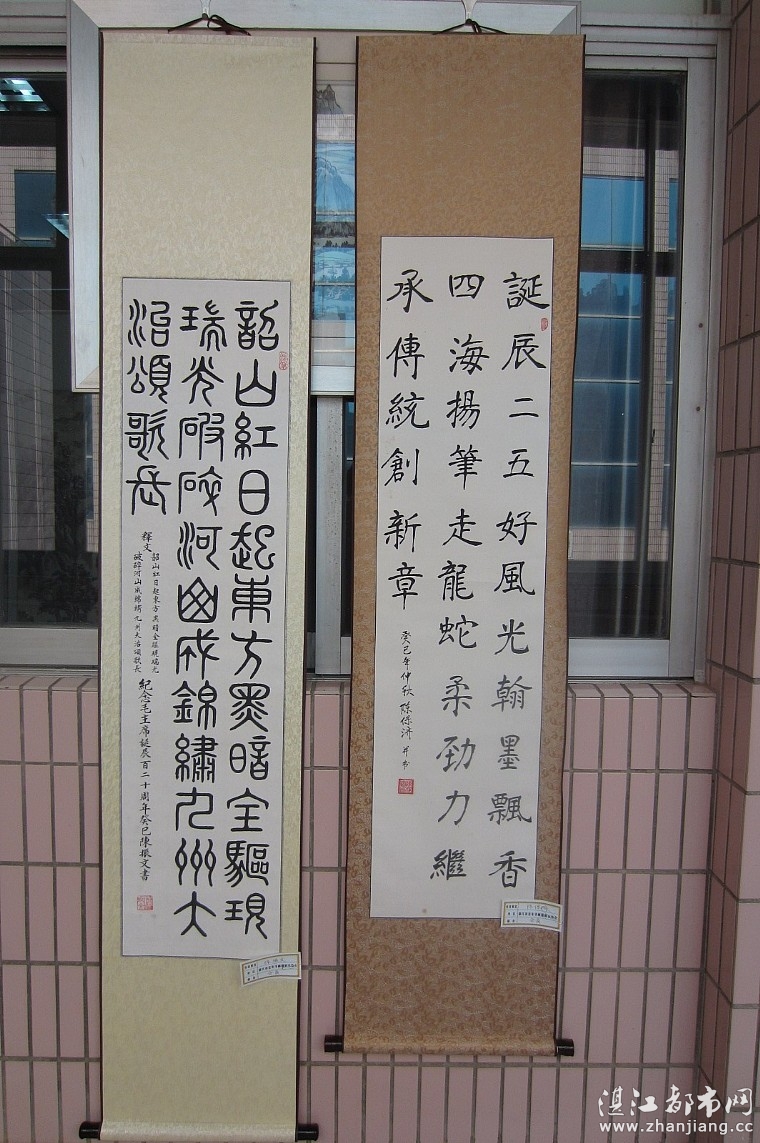 誕辰二五好風光翰墨飄香
四海揚筆走龍蛇柔勁力繼
承傳統創新章
癸巳年仲秋 陈保济 并书
韶山紅日起東方黑暗全驅現
瑞光破碎河山成錦繡九州大
治頌歌長
釋文
韶山紅日起東方黑暗全驅現瑞光
破碎河山成錦綉九州大治頌歌長
紀念毛主席誕辰百二十周年癸巳陳振文書
湛江都市网
www.zhanjiang.cc